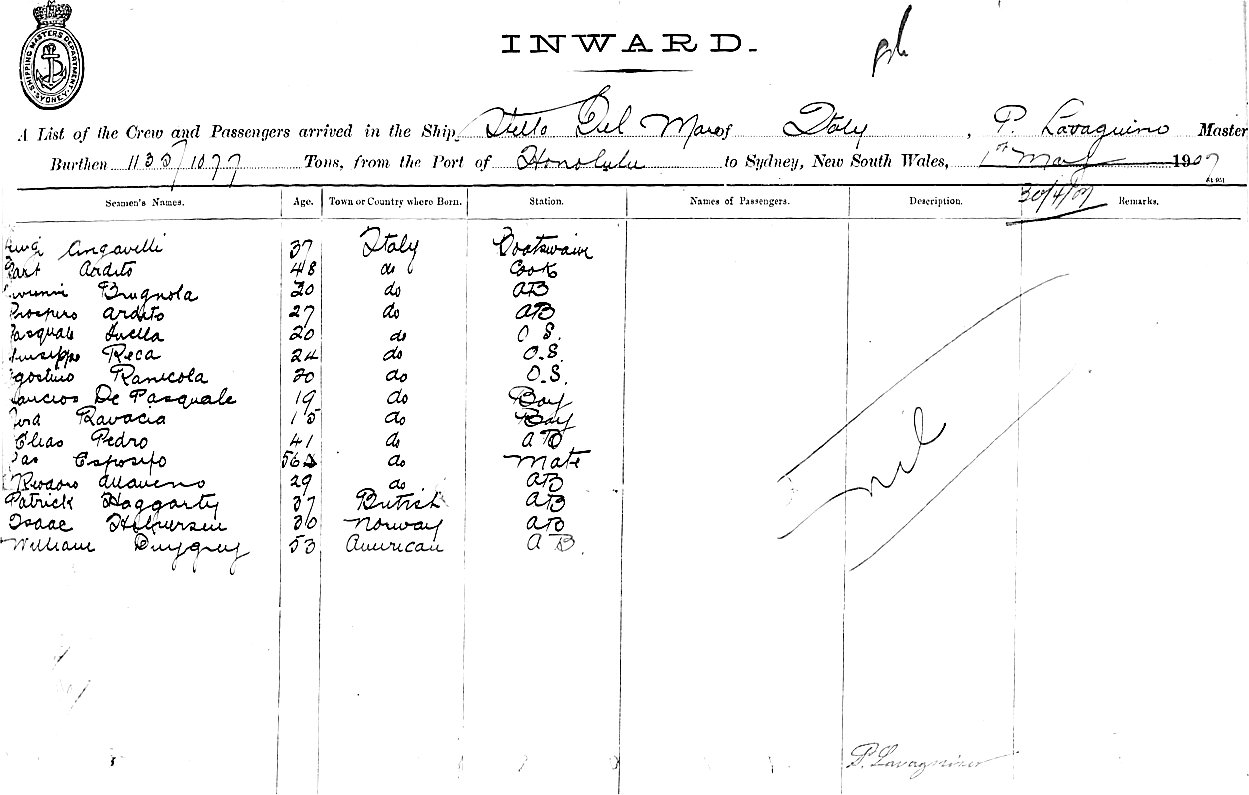 SHIPPING MASTERS DEPARTMENT SYDNEY
INWARD.
A List of the Crew and Passengers arrived in the Ship Stella Del Mare of Italy, P. Lavagnino Master
Burthen 1135/1077 Tons, from the Port of Honolulu to Sydney, New South Wales, 1st May 1907
30/4/07
Seamen's Names. Age. Town or Country where Born. Station. Names of Passengers. Description. Remarks.
37 Italy Boatswain
Ardito 48 do Cook
Brugnola 20 do AB
Prospero Ardito 27 do AB
Pasquale 20 do O.S.
Giuseppe Reca 24 do O.S.
Agostino Ranicola 20 do O.S.
De Pasquale 19 do Boy
Ravacia 15 do Boy
Elias Pedro 41 do AB
do Mate
29 do AB
Patrick Haggarty 37 British AB
Isaac 36 Norway AB
William 53 American AB
nil
P. Lavagnino